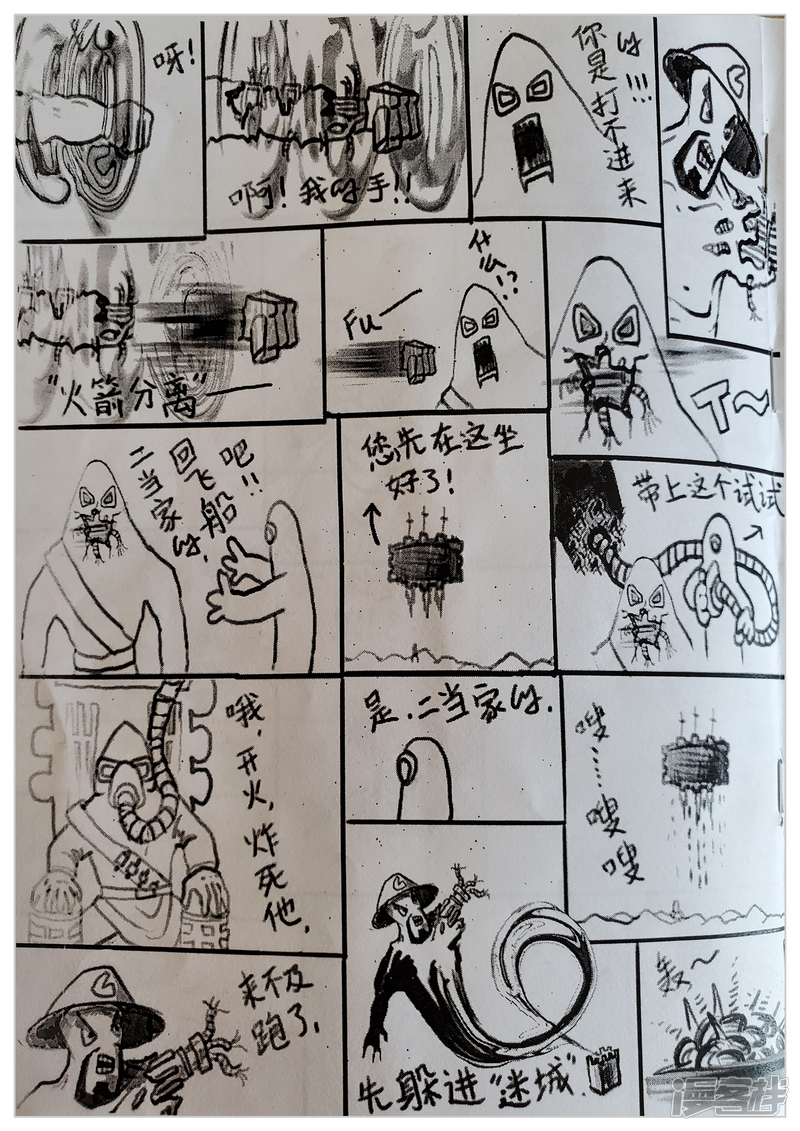 呀!
啊!我的手!!
你是打不进来
的!!!
"火箭分离"
Fu
什么!?
T~
二当家的,
回飞船
吧!!
您先在这坐
好了!
带上这个试试
哦,开火,炸死他,
是,二当家的,
嗖……嗖嗖
来不及
跑了,
先躲进"迷城",
轰~
漫客栈